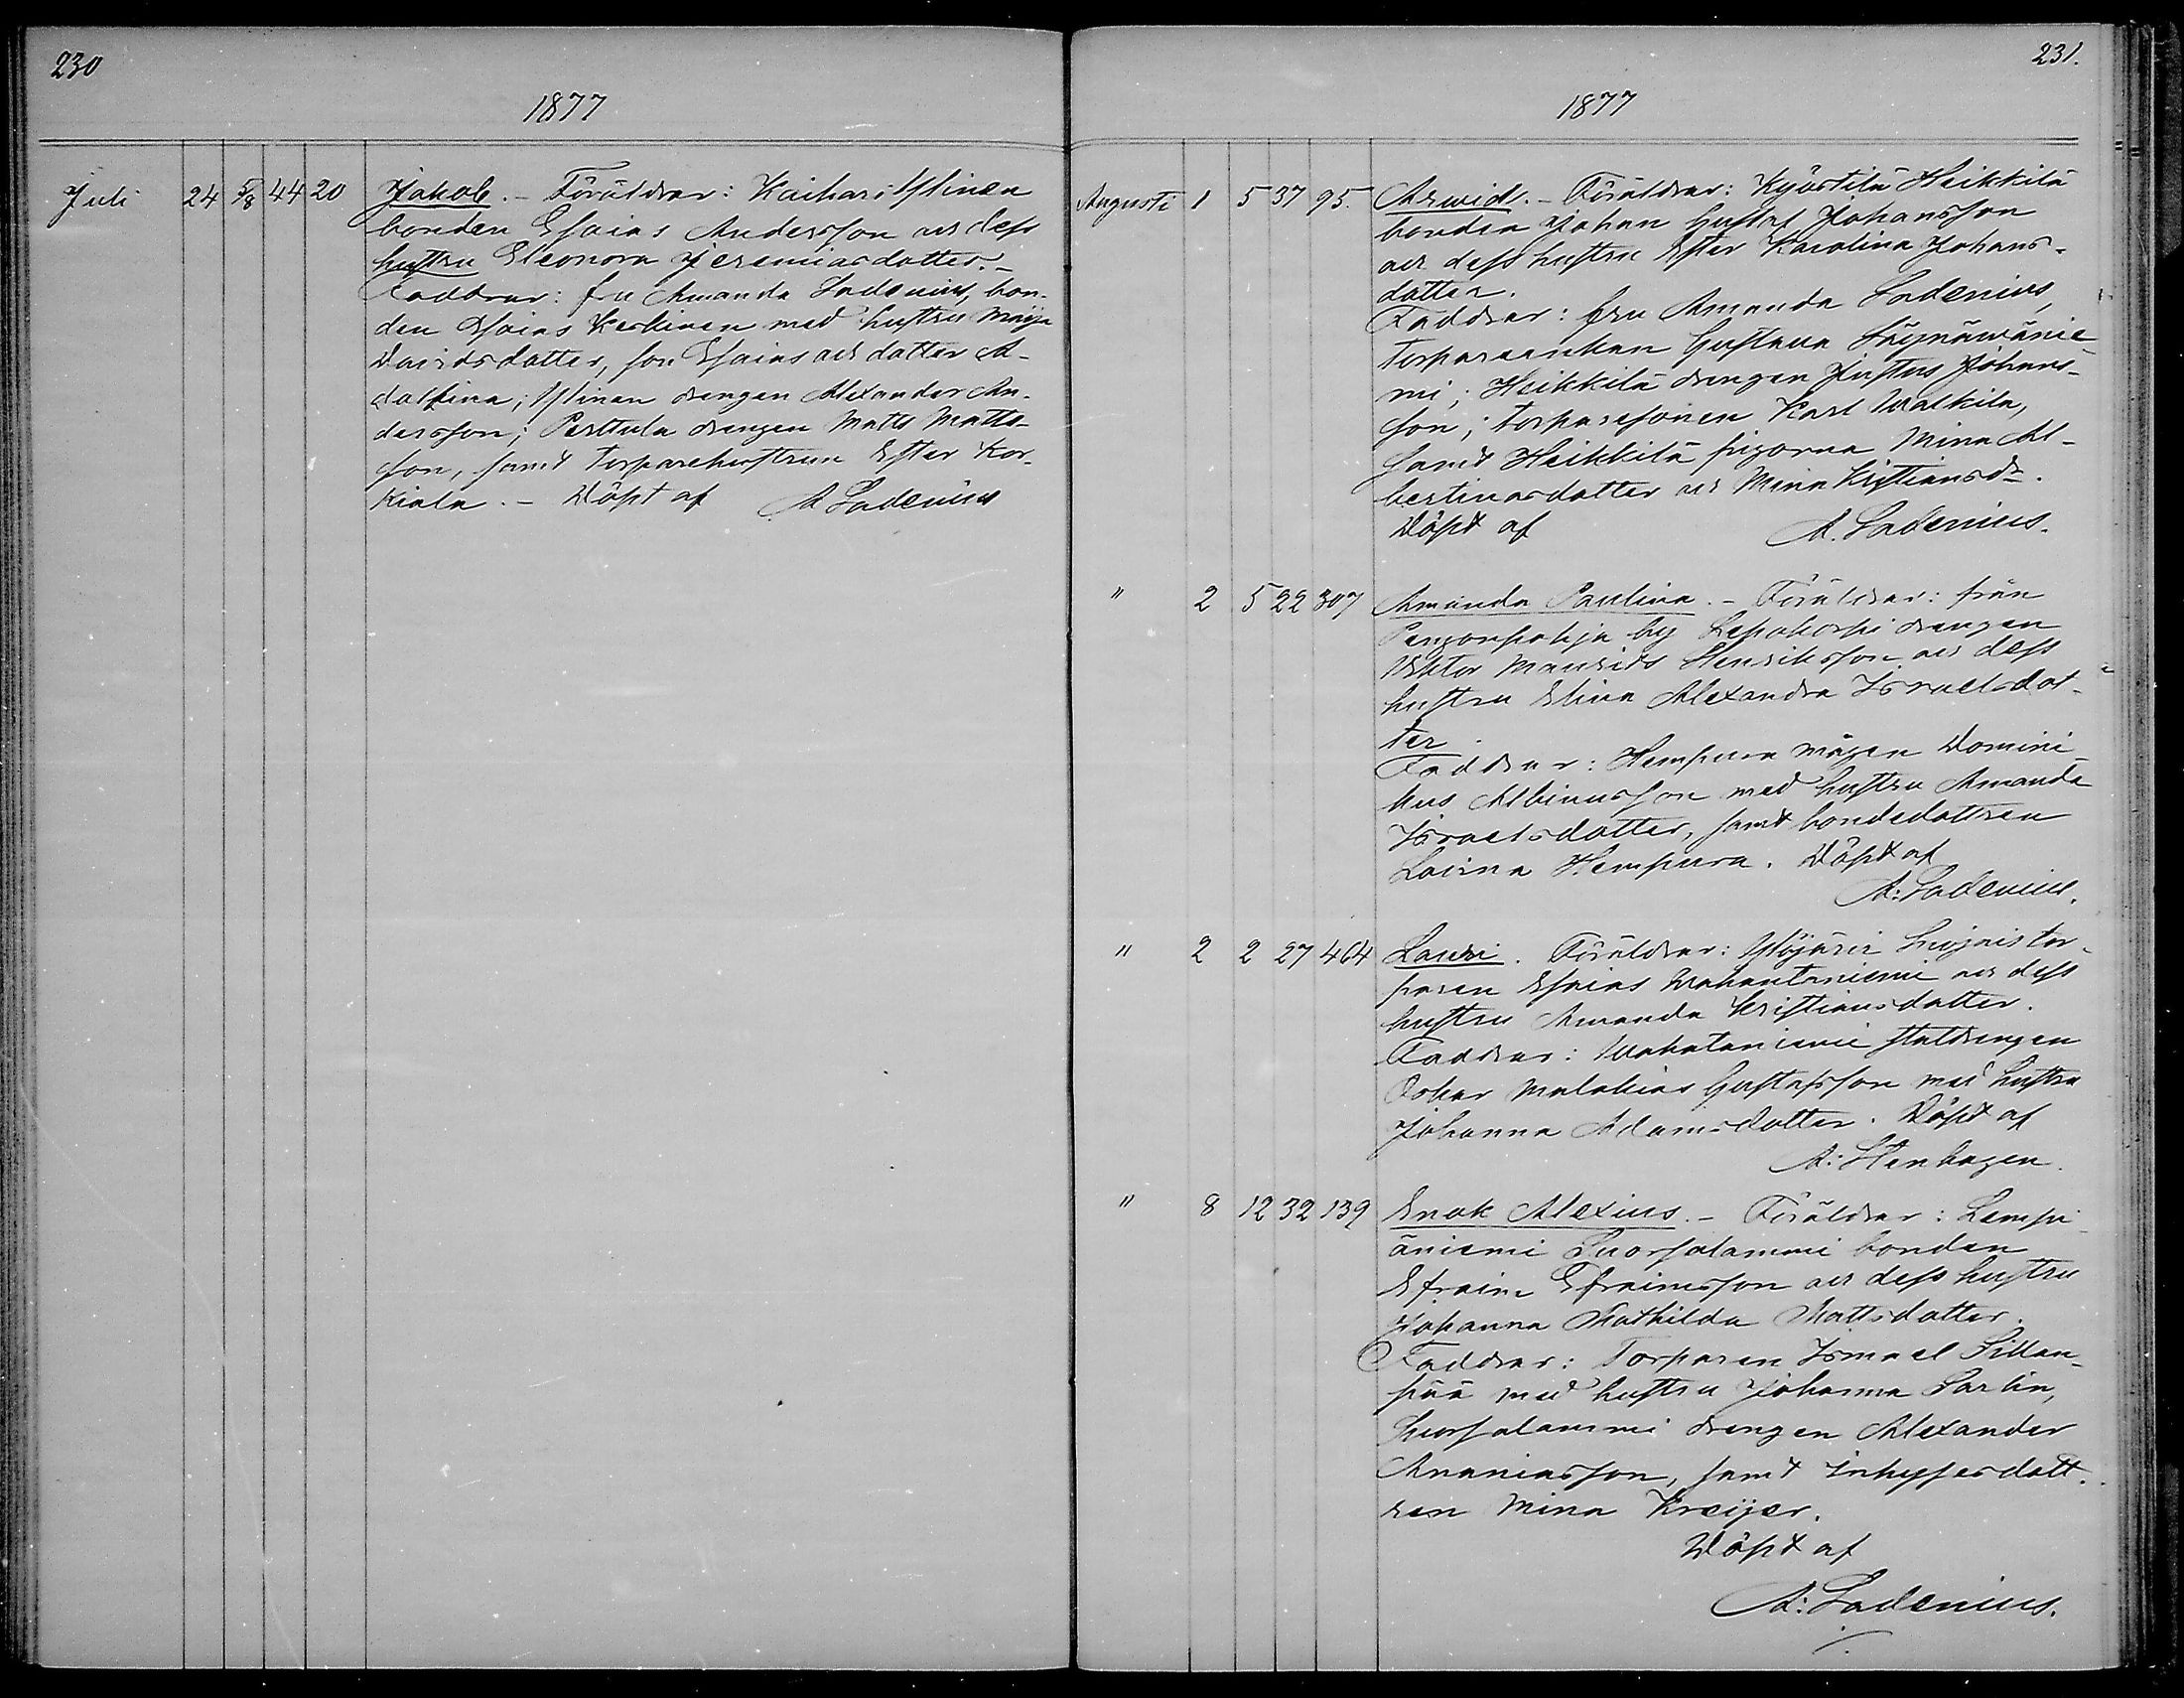 230
1877
Juli 24 5/8 44 20 Jakob. - Föräldrar: Kaihari Ylinen
bonden Esaias Andersson och dess
hustru Eleonora Jeremiasdotter. -
Faddrar: fru Amanda Ladenius, bon-
den Esaias Keskinen med hustru Maija
Davidsdotter, son Esaias och dotter A-
dolfina; Ylinen drengen Alexander An-
dersson; Perttula drengen Matts Matts-
son, samt torparehustrun Ester Kor-
kiala. - Döpt af A. Ladenius
231.
1877
Augusti 1 5 37 95. Arwid. - Föräldrar: Kyöstilä Heikkilä
bonden Johan Gustaf Johansson
och dess hustru Ester Karolina Johans-
dotter.
Faddrar: fru Amanda Ladenius,
torpareenkan Gustava
mi; Heikkilä drengen Justus Johans-
son; torparesonen Karl Walkila,
samt Heikkilä pigorna Mina Al-
bertinasdotter och Mina Kristiansdr.
Döpt af A. Ladenius.
" 2 5 22 307 Amanda Paulina. - Föräldrar: från
Pengonpohja by Lepokorpi drengen
Viktor Maurits Henriksson och dess
hustru Elina Alexandra Israelsdot-
ter.
Faddrar: Hempura mågen Domini-
kus Albinusson med hustru Amanda
Israelsdotter, samt bondedottren
Lovina Hempura. Döpt af
A. Ladenius.
" 2 2 27 464 Lauri. Föräldrar: Ylöjärvi tor-
paren Esaias Wahantaniemi och dess
hustru Amanda Kristiansdotter.
Faddrar: Wahataniemi statdrengen
Oskar Malakias Gustafsson med hustru
Johanna Adamsdotter. Döpt af
A: Stenhagen.
" 8 12 32 139 Enok Alexius. - Föräldrar: Lempi-
äniemi Suorsalammi bonden
Efraim Efraimsson och dess hustru
Johanna Mathilda Mattsdotter.
Faddrar: Torparen Ismael Sillan-
pää med hustru Johanna Sarlin,
Suorsalammi drengen Alexander
Ananiasson, samt inhysesdott-
ren Mina Kreijer.
Döpt af
A: Ladenius.